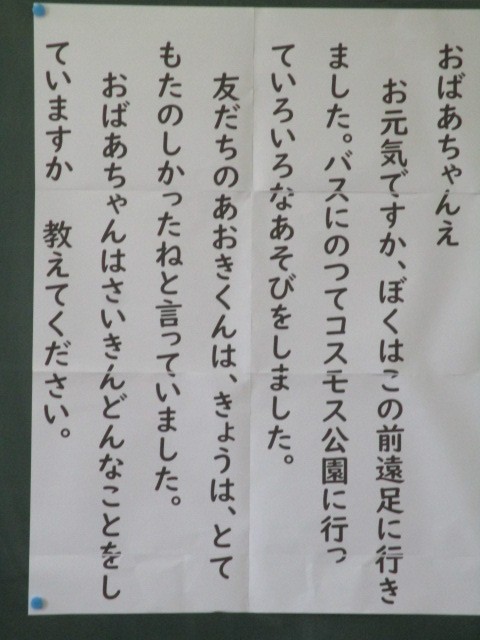 おばあちゃんえ
お元気ですか、ぼくはこの前遠足に行き
ました。バスにのつてコスモス公園に行っ
ていろいろなあそびをしました。
友だちのあおきくんは、きょうは、とて
もたのしかったねと言っていました。
おばあちゃんはさいきんどんなことをし
ていますか 教えてください。